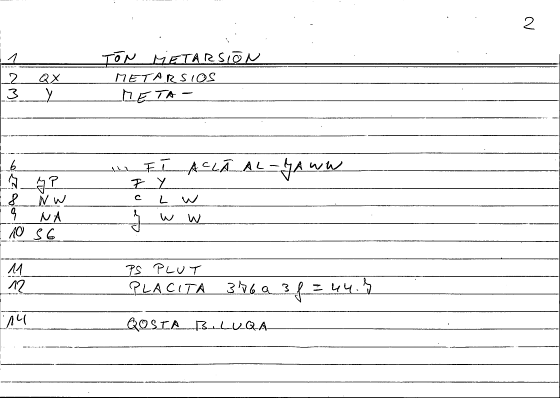 2
1 TŌN METARSIŌN
2 QX METARSIOS
3 Y META-
6 ... FĪ ACLĀ AL-ǦAWW
7 ǦP F Y
8 NW C L W
9 NA Ǧ W W
10 SG
11 PS PLUT
12 PLACITA 376a 3f = 44.7
14 QOSTA B. LUQA